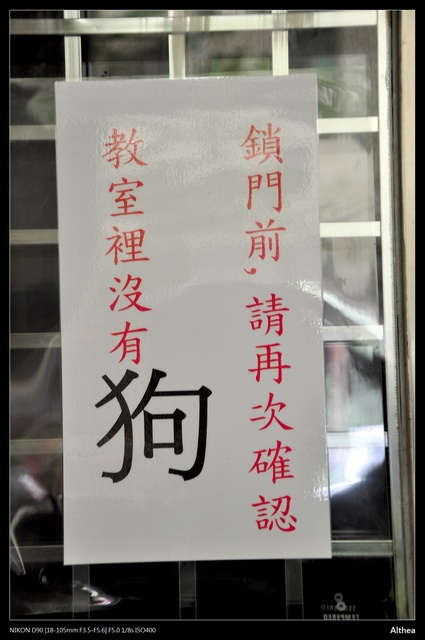 鎖門前，請再次確認
教室裡沒有狗
8
TEMPERED
NIKON D90 [18-105mm F3.5-F5.6] F5.0 1/8s ISO400
Althea